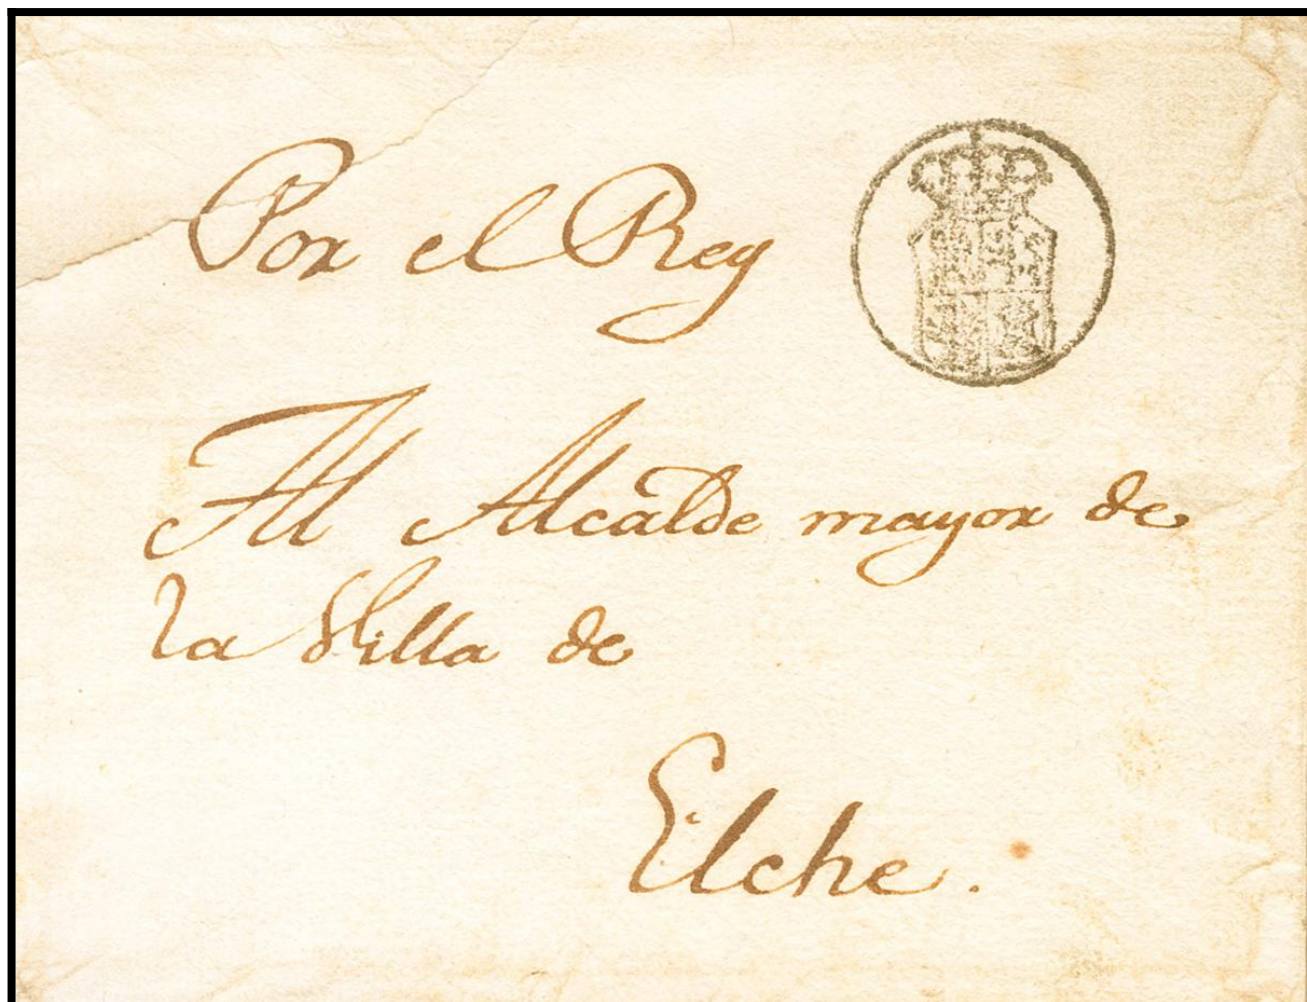 Por el Rey
Al Alcalde mayor de
la Villa de
Elche.